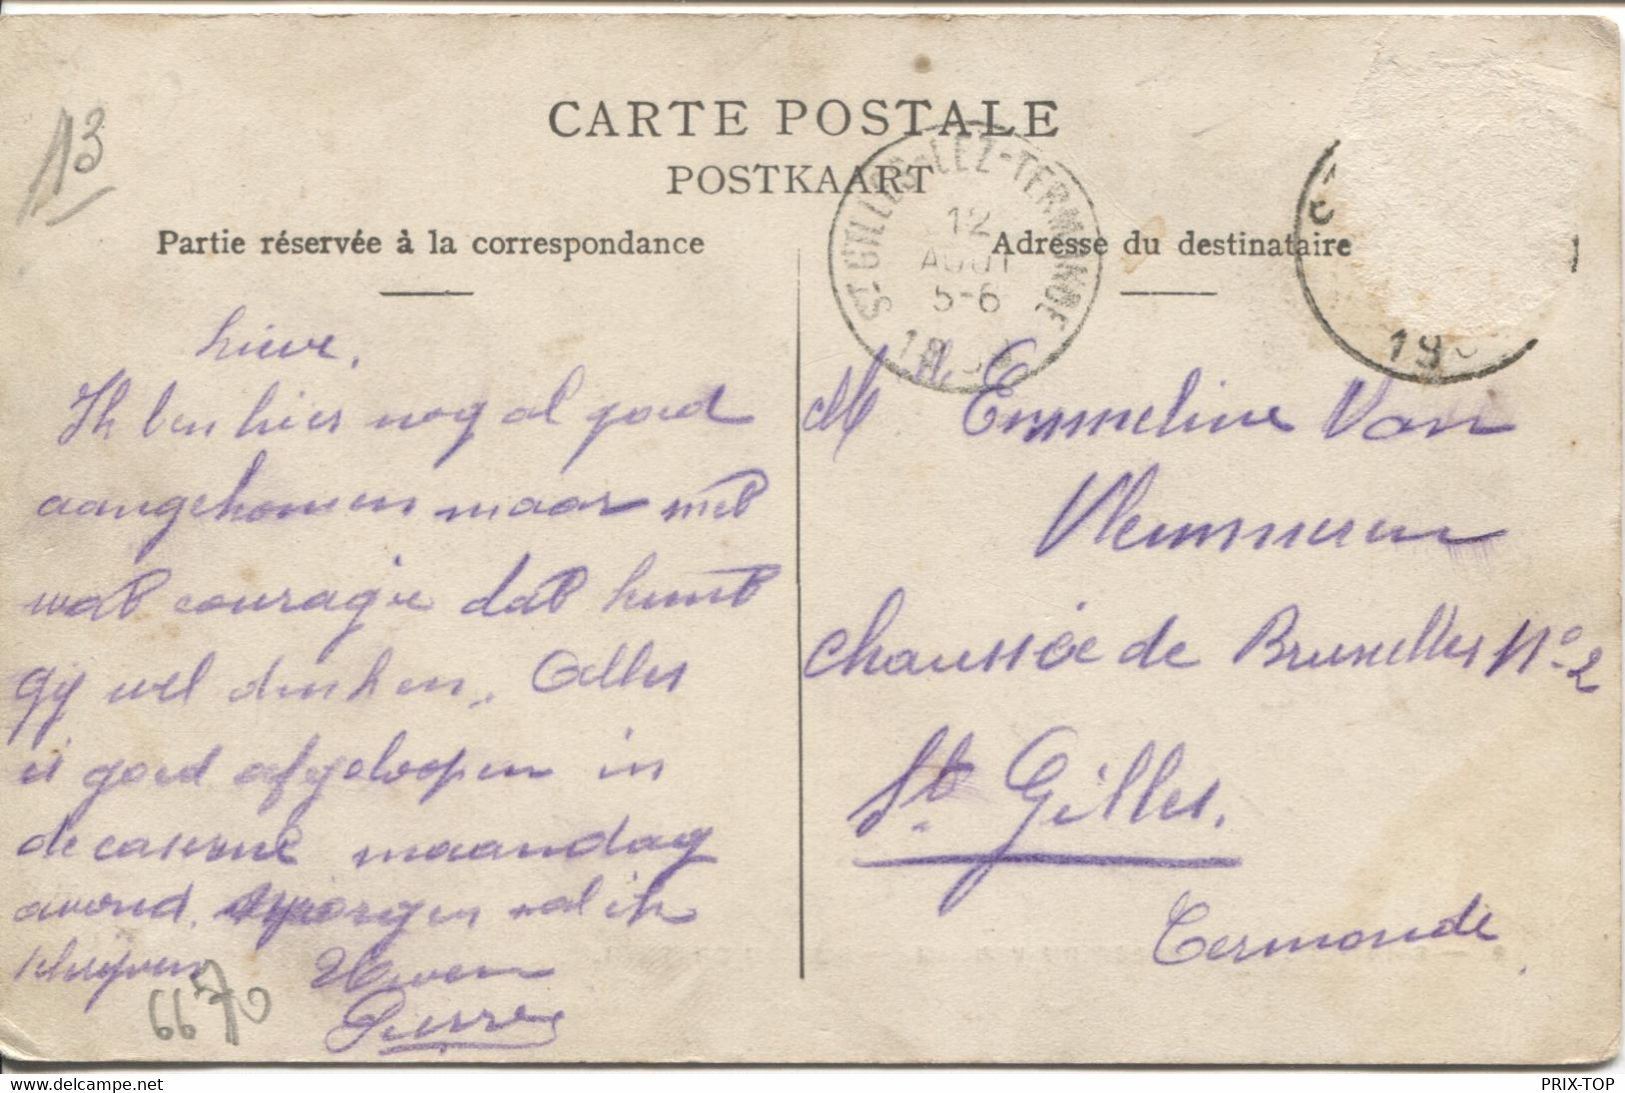 13
CARTE POSTALE
POSTKAART
Partie réservée à la correspondance
Adresse du destinataire
ST-GILLES-LEZ-TERMONDE
12
AOUT
5-6
19
19
Lieve,
Ik ben hier nog al goed
aangekomen maar met
wat couragie dat kunt
gij wel denken. Alles
is goed afgeloopen in
de caserne maandag
avond. morgen zal ik
schrijven Uwen
Pierre
6670
Mlle Emmeline Van
Vlemmeren
Chaussée de Bruxelles No 2
St. Gilles.
Termonde
www.delcampe.net
PRIX-TOP